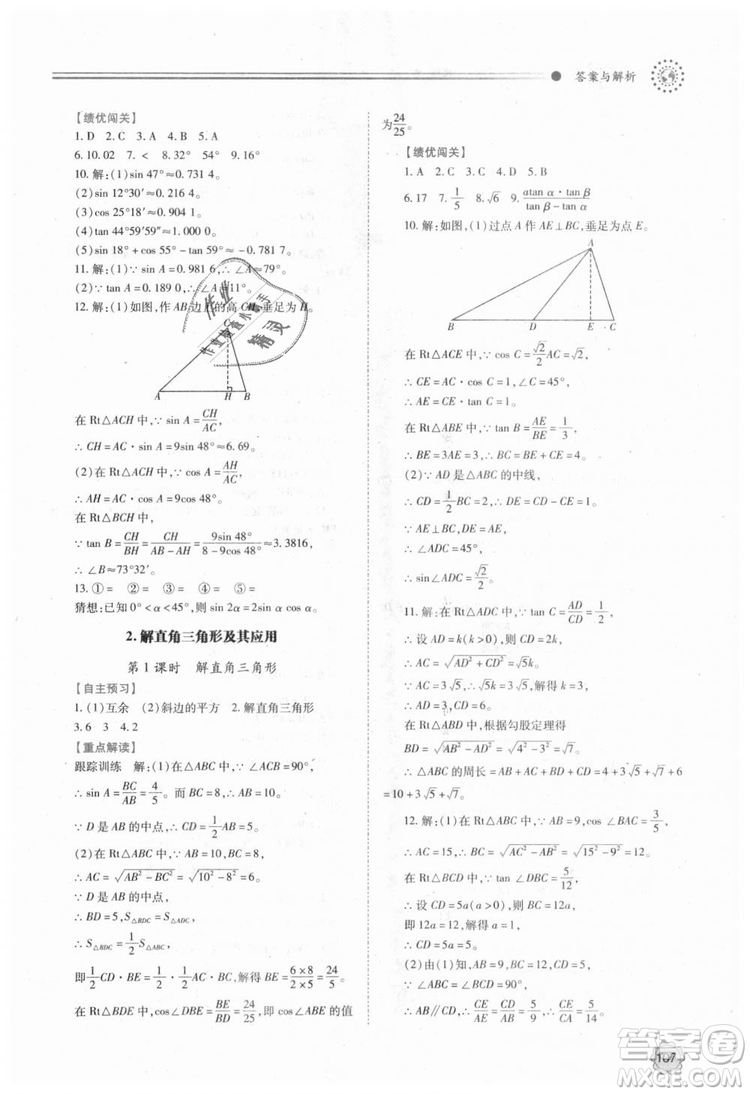 答案与解析
【绩优闯关】
1. D 2. C 3. A 4. B 5. A
6. 10.02 7. < 8. 32° 54° 9. 16°
10. 解:(1)sin 47°≈0.731 4。
(2)sin 12°30′≈0.216 4。
(3)cos 25°18′≈0.904 1。
(4)tan 44°59′59″≈1.000 0。
(5)sin 18°+cos 55°-tan 59°≈-0.781 7。
11. 解:(1)∵sin A=0.981 6,∴∠A≈79°。
(2)∵tan A=0.189 0,∴∠A≈11°。
12. 解:(1)如图,作AB边上的高CH,垂足为H。
C
A H B
在Rt△ACH中,∵sin A=CH/AC,
∴CH=AC·sin A=9sin 48°≈6.69。
(2)在Rt△ACH中,∵cos A=AH/AC,
∴AH=AC·cos A=9cos 48°。
在Rt△BCH中,
∵tan B=CH/BH=CH/(AB-AH)=9sin 48°/(8-9cos 48°)≈3.3816,
∴∠B≈73°32′。
13. ①= ②= ③= ④= ⑤=
猜想:已知0°<α<45°,则sin 2α=2sin αcos α。
2. 解直角三角形及其应用
第1课时 解直角三角形
【自主预习】
1. (1)互余 (2)斜边的平方 2. 解直角三角形
3. 6 3 4. 2
【重点解读】
跟踪训练 解:(1)∵∠ACB=90°,
∴sin A=BC/AB=4/5。而BC=8,∴AB=10。
∵D是AB的中点,∴CD=1/2AB=5。
(2)在Rt△ABC中,∵AB=10,BC=8,
∴AC=√(AB²-BC²)=√(10²-8²)=6。
∵D是AB的中点,
∴BD=5,S△BDC=S△ADC,∴S△BDC=1/2S△ABC,
即1/2CD·BE=1/2·1/2AC·BC,解得BE=(6×8)/(2×5)=24/5。
在Rt△BDE中,cos∠DBE=BE/BD=24/25,即cos∠ABE的值
为24/25。
【绩优闯关】
1. A 2. C 3. A 4. D 5. B
6. 17 7. 1/5 8. √6 9. (atan α·tan β)/(tan β-tan α)
10. 解:如图,(1)过点A作AE⊥BC,垂足为E。
A
B D E C
在Rt△ACE中,∵cos C=√2/2,AC=√2,
∴CE=AC·cos C=1,∠C=45°,
∴AE=CE·tan C=1。
在Rt△ABE中,∵tan B=AE/BE=1/3,
∴BE=3AE=3,∴BC=BE+CE=4。
(2)∵AD是△ABC的中线,
∴CD=1/2BC=2,∴DE=CD-CE=1。
∵AE⊥BC,DE=AE,
∴∠ADC=45°,
∴sin∠ADC=√2/2。
11. 解:在Rt△ADC中,∵tan C=AD/CD=1/2,
∴设AD=k(k>0),则CD=2k,
∴AC=√(AD²+CD²)=√5k。
∵AC=3√5,∴√5k=3√5,解得k=3,
∴AD=3,CD=6。
在Rt△ABD中,根据勾股定理得
BD=√(AB²-AD²)=√(4²-3²)=√7。
∴△ABC的周长=AB+AC+BD+CD=4+3√5+√7+6
=10+3√5+√7。
12. 解:(1)在Rt△ABC中,∵AB=9,cos∠BAC=3/5,
∴AC=15,∴BC=√(AC²-AB²)=√(15²-9²)=12。
在Rt△BCD中,∵tan∠DBC=5/12,
∴设CD=5a(a>0),则BC=12a,
即12a=12,解得a=1,
∴CD=5。
(2)由(1)知,CD=5。
∵∠ABC=∠BCD=90°,
∴AB∥CD,∴CE/AE=CD/AB=5/9,∴CE/CA=5/14。
107